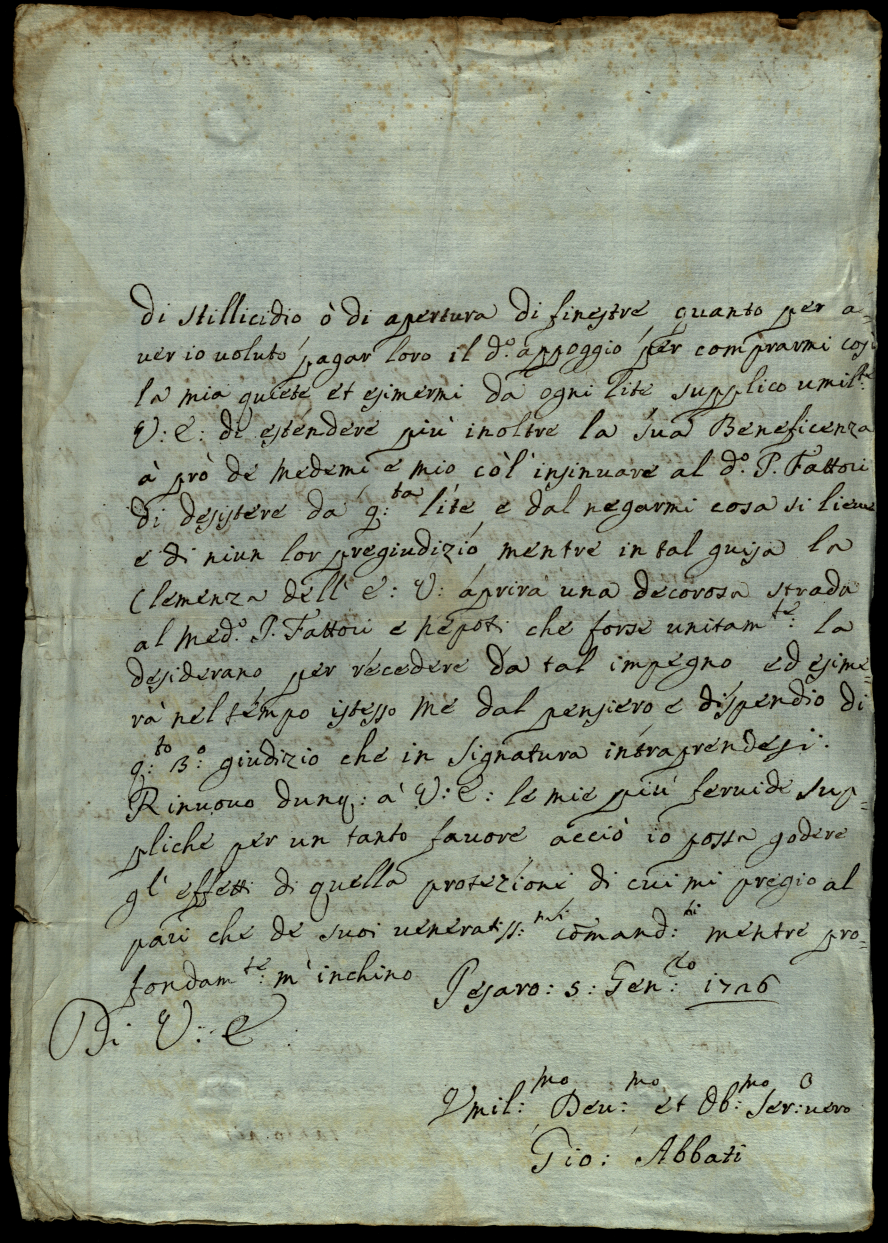 di stillicidio ò di apertura di finestre quanto per a=
uer io uoluto pagar loro il d.º appoggio per comprarmi così
la mia quiete et esimermi da ogni lite supplico umil:te
V: E: di estendere più inoltre la sua Beneficenza
à prò de medemi e mio còl' insinuare al d.º P. Fattori
di desistere da q:ta lite e dal negarmi cosa si lieue
e di niun lor pregiudizio mentre in tal guisa la
Clemenza dell' E: V: aprira una decorosa strada
al med.º P. Fattori e nepoti che forse unitam:te la
desiderano per recedere da tal impegno ed esime=
rà nel tempo istesso me dal pensiero e dispendio di
q:to 3:º giudizio che in Signatura intraprendesi:
Rinuouo dunq: à V: E: le mie più feruide sup=
pliche per un tanto fauore acciò io possa godere
gl' effetti di quella protezione di cui mi pregio al
pari che de suoi ueneratiss:mi comand:ti mentre pro=
fondam:te m' inchino Pesaro: 5: Gen:ro 1726
Di V: E:
Vmil:mo Deu:mo et Ob:mo Ser:uero
Gio: Abbati